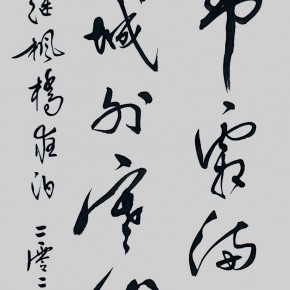 霜满
城外寒
继枫橋夜泊 二零二